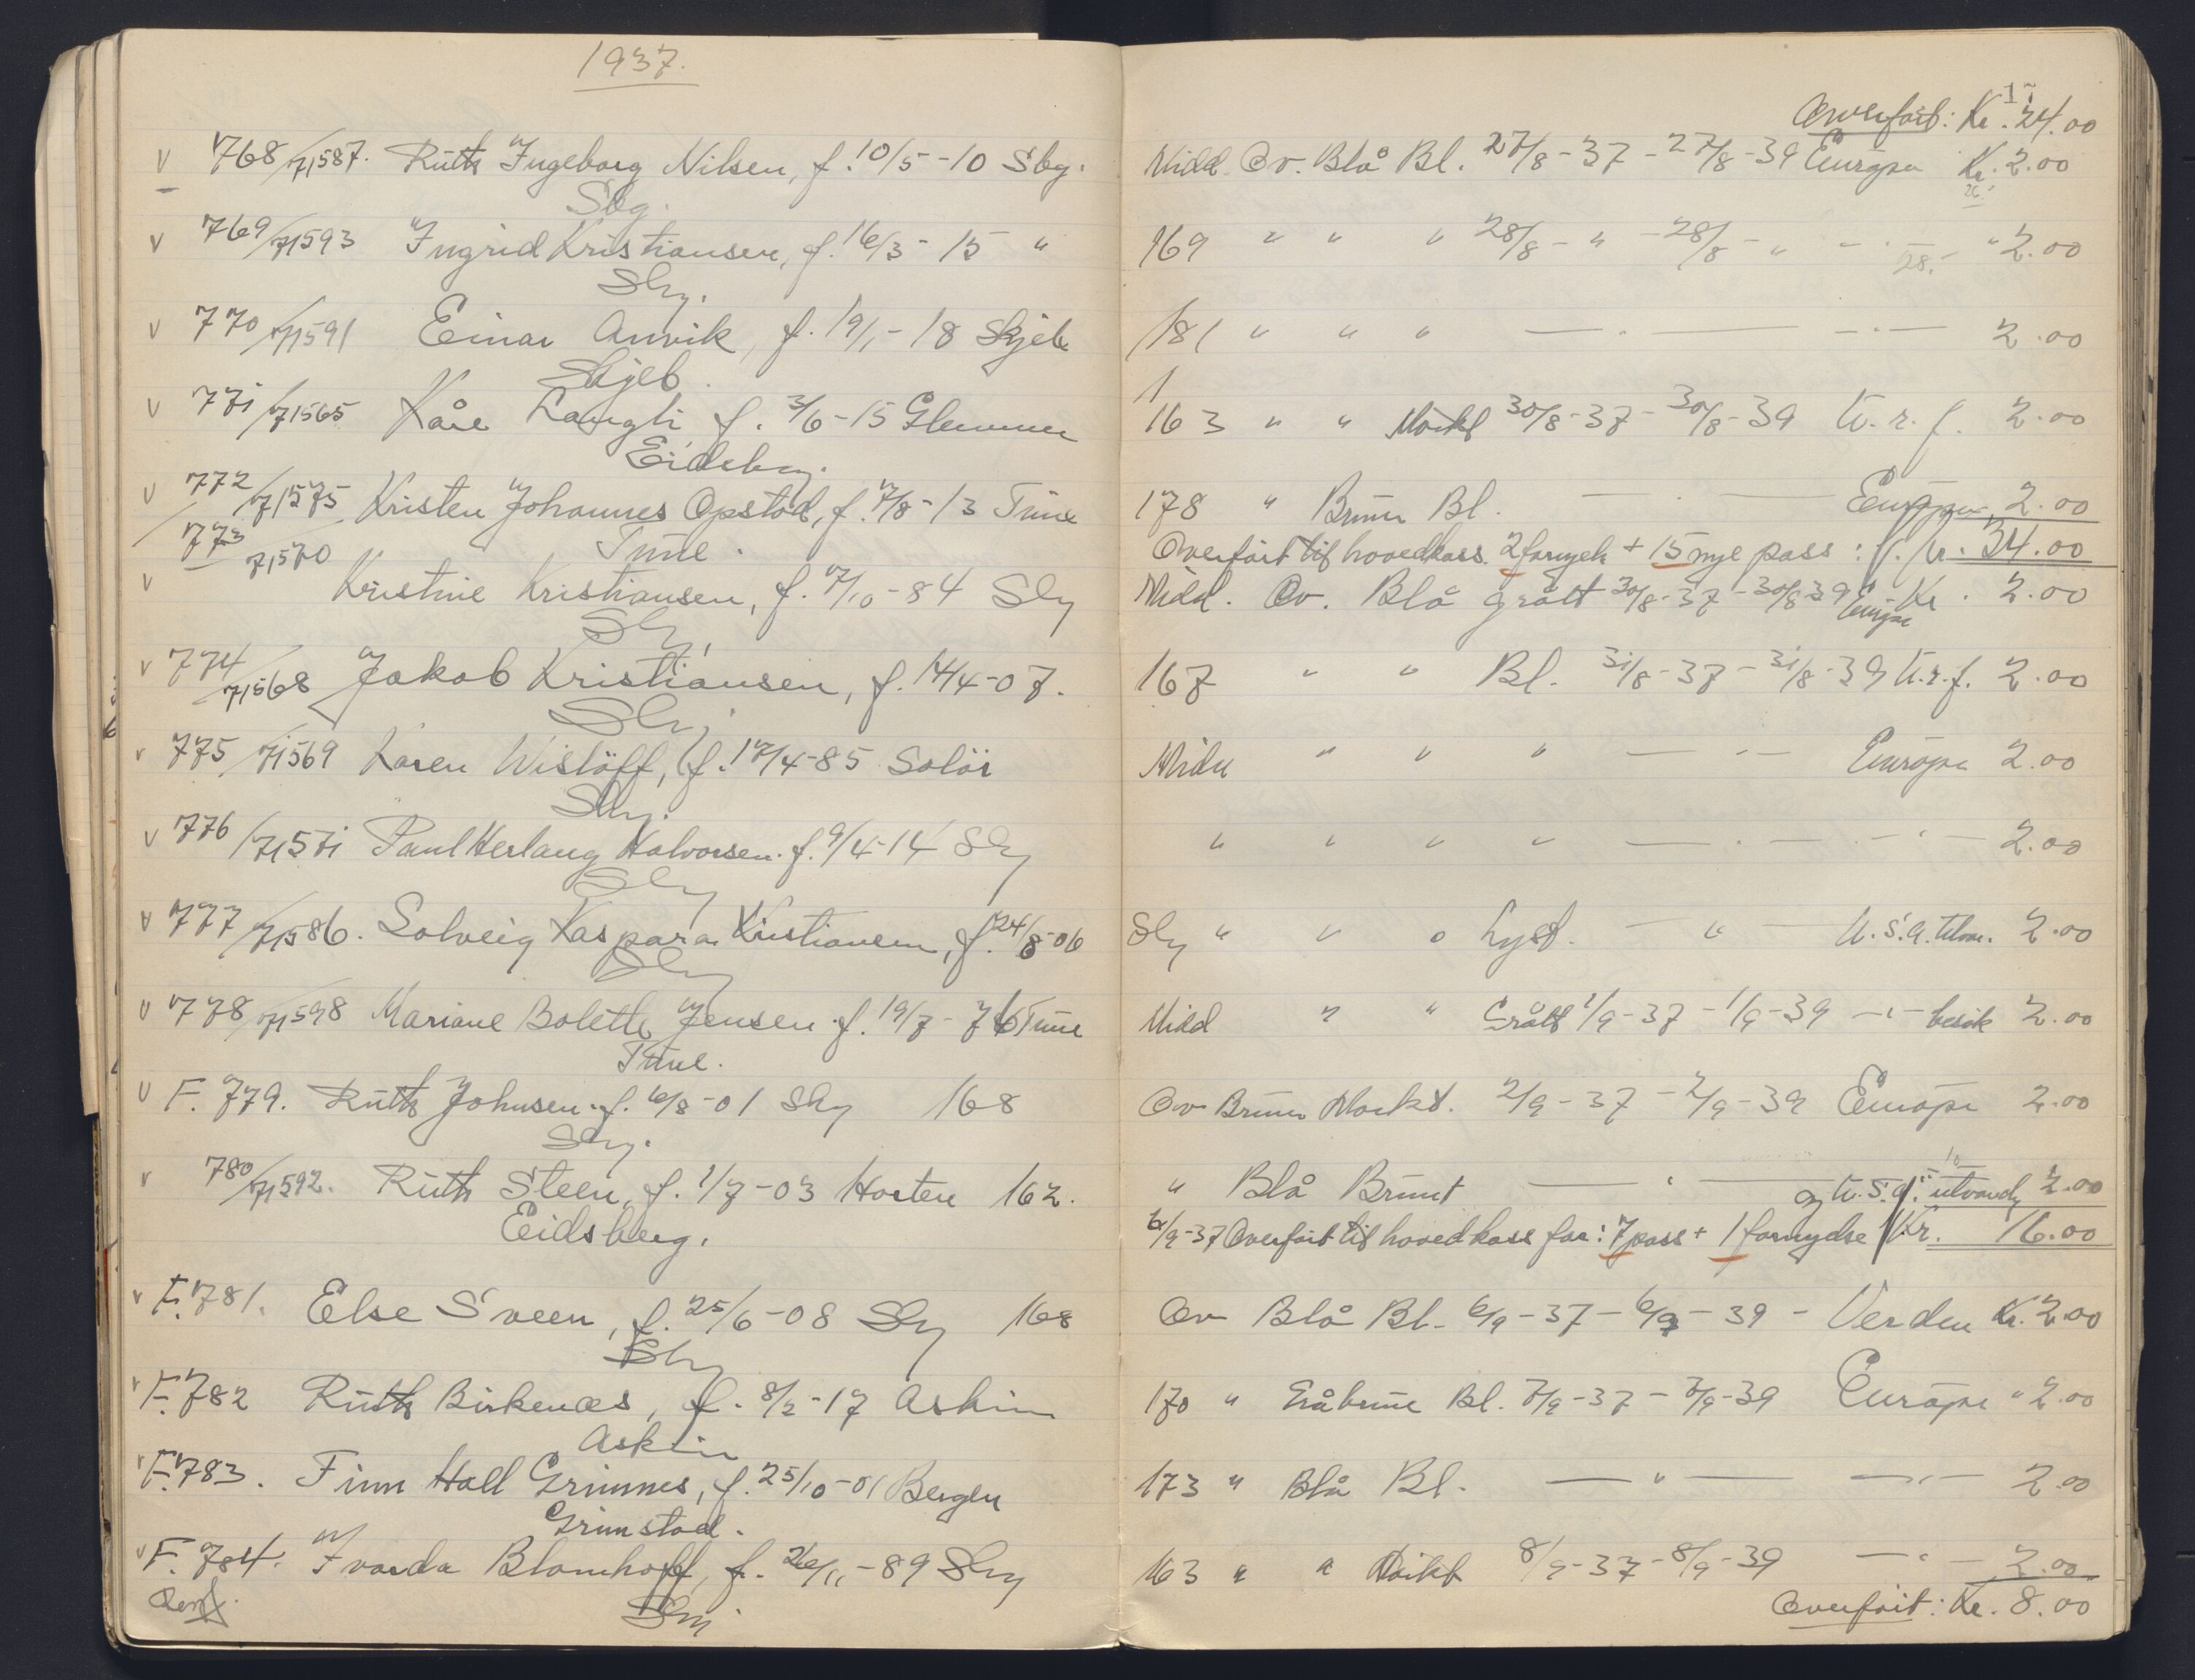 1937.
V 768/71587. Ruth Ingeborg Nilsen, f. 10/5-10 Sbg.
Sbg.
V 769/71593 Ingrid Kristiansen, f. 16/3-15 "
Sbg.
V 770/71591 Einar Anvik, f. 19/1-18 Skjeb
Skjeb.
V 771/71565 Kåre Langli f. 3/6-15 Glemmen
Eidsberg.
V 772/71575 Kristen Johannes Opstad, f. 7/8-13 Tune
Tune.
773/71570
V Kristine Kristiansen, f. 7/10-84 Sbg
Sbg.
V 774/71568 Jakob Kristiansen, f. 14/4-07.
Sbg.
V 775/71569 Karen Wislöff, f. 17/4-85 Solör
Sbg.
V 776/71571 Paul Herlaug Halvorsen. f. 9/4-14 Sbg
Sbg
V 777/71586. Solveig Kaspara Kristiansen, f. 24/8-06
Sbg
V 778/71598 Mariane Bolette Jensen. f. 19/7-76 Tune
Tune.
V F. 779. Ruth Johnsen. f. 6/8-01 Sbg 168
Sbg.
V 780/71592. Ruth Steen, f. 1/7-03 Horten 162.
Eidsberg.
V F. 781. Else Sveen, f. 25/6-08 Sbg 168
Sbg
V F. 782 Ruth Birkenæs, f. 8/2-17 Askim
Askim
V F. 783. Finn Hall Grimnes, f. 25/10-01 Bergen
Grimstad.
V F. 784. Ivarda Blomhoff, f. 26/11-89 Sbg
Sbg.
17
Overfört: Kr. 24.00
Midd. Ov. Blå Bl. 27/8-37-27/8-39 Europa Kr. 2.00
26.-
169 " " " 28/8-"-28/8-" -"- 28.- " 2.00
181 " " " -"- -"- 2.00
1
163 " " Mörkt 30/8-37-30/8-39 U.r.f. 2.00
178 " Brun Bl. -"- Europa 2.00
Overfört til hovedkass. 2 fornyels + 15 nye pass: Kr. 34.00
Midd. Ov. Blå grått 30/8-37-30/8-39 Europa Kr. 2.00
167 " " Bl. 31/8-37-31/8-39 U.r.f. 2.00
Midd " " " -"- Europa 2.00
" " " " -"- -"- 2.00
Sbg " " " Lyst. -"- U.S.A. 2.00
Midd " " Grått 1/9-37-1/9-39 -"- besök 2.00
Ov Brun Mörkt. 2/9-37-2/9-39 Europa 2.00
" Blå Brunt -"- -"- og U.S.A. utvandr 2.00
4/9-37 Overfört til hovedkass for: 7 pass + 1 fornyelse Kr. 16.00
Ov Blå Bl. 6/9-37-6/9-39 - Verden Kr. 2.00
170 " Gråbrune Bl. 7/9-37-7/9-39 Europa " 2.00
173 " Blå Bl. -"- -"- 2.00
163 " " Mörkt 8/9-37-8/9-39 -"- 2.00
Overfört: Kr. 8.00